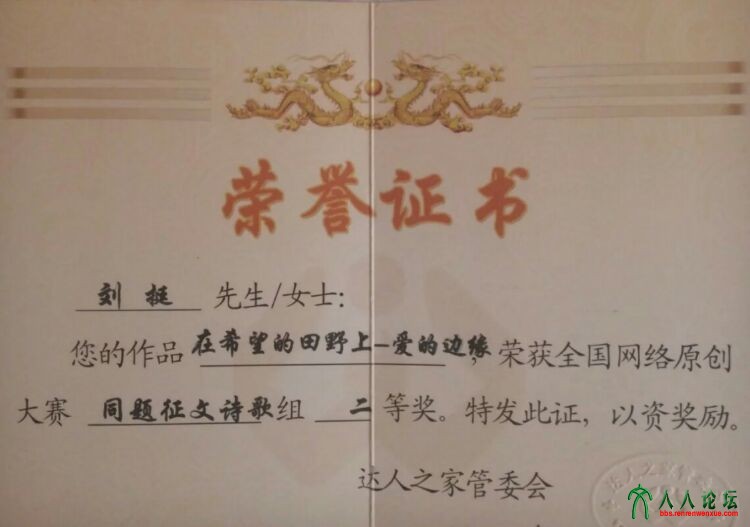 荣誉证书
刘挺 先生/女士：
您的作品 在希望的田野上—爱的边缘，荣获全国网络原创
大赛 同题征文诗歌组 二 等奖。特发此证，以资奖励。
达人之家管委会
人人论坛
bbs.renrenwenxue.com